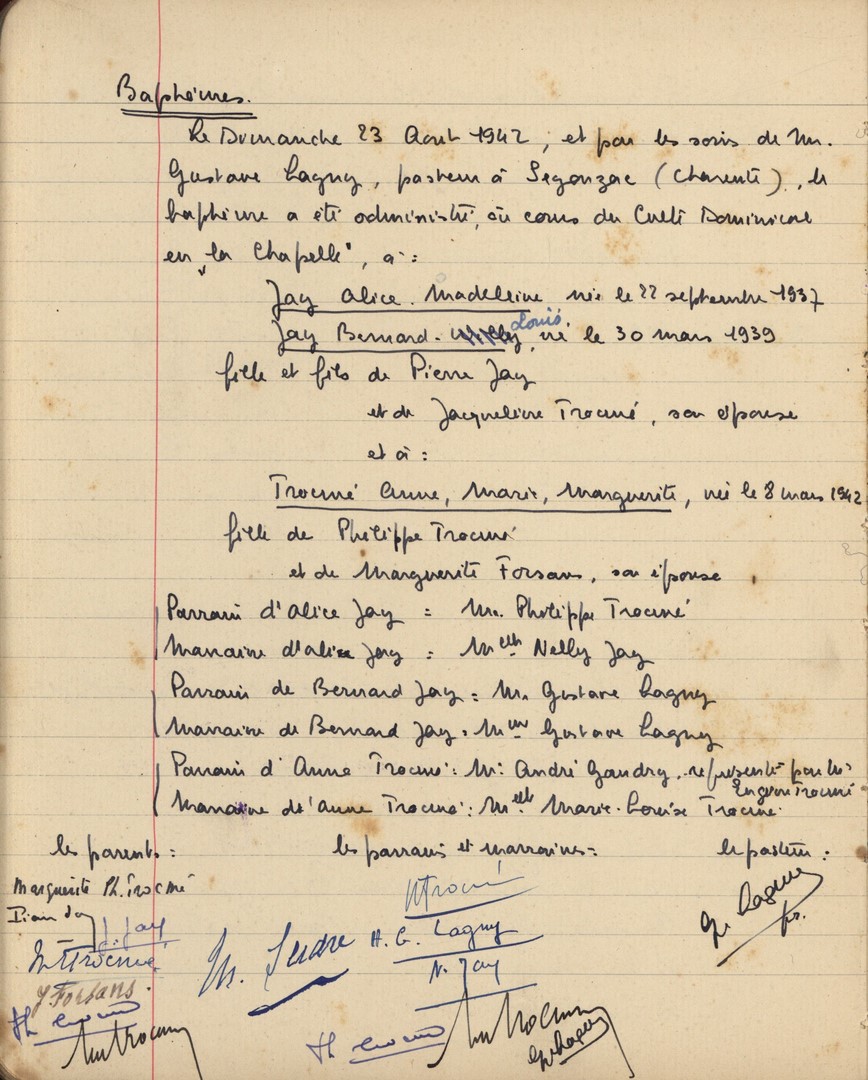 Baptêmes.
Le Dimanche 23 Aout 1942, et par les soins de Mr.
Gustave Lagny, pasteur à Segonzac (Charente), le
baptême a été administré, au cours du Culte Dominical
en "la Chapelle", à :
Jay Alice. Madeleine née le 22 septembre 1937
Louis
Jay Bernard. Willy, né le 30 mars 1939
fille et fils de Pierre Jay
et de Jacqueline Trocmé, son épouse
et à :
Trocmé Anne, Marie, Marguerite, née le 8 mars 1942
fille de Philippe Trocmé
et de Marguerite Forsans, son épouse
Parrain d'Alice Jay : Mr. Philippe Trocmé
Marraine d'Alice Jay : Melle Nelly Jay
Parrain de Bernard Jay : M. Gustave Lagny
Marraine de Bernard Jay : Mme Gustave Lagny
Parrain d'Anne Trocmé : Mr. André Gandry, représenté par Mr
Eugène Trocmé
Marraine de'Anne Trocmé : Melle Marie-Louise Trocmé.
les parents : les parrains et marraines : le pasteur :
Marguerite Ph. Trocmé
Jay J. Jay
Trocmé H. G. Lagny G. Lagny
N. Jay
Forsans.